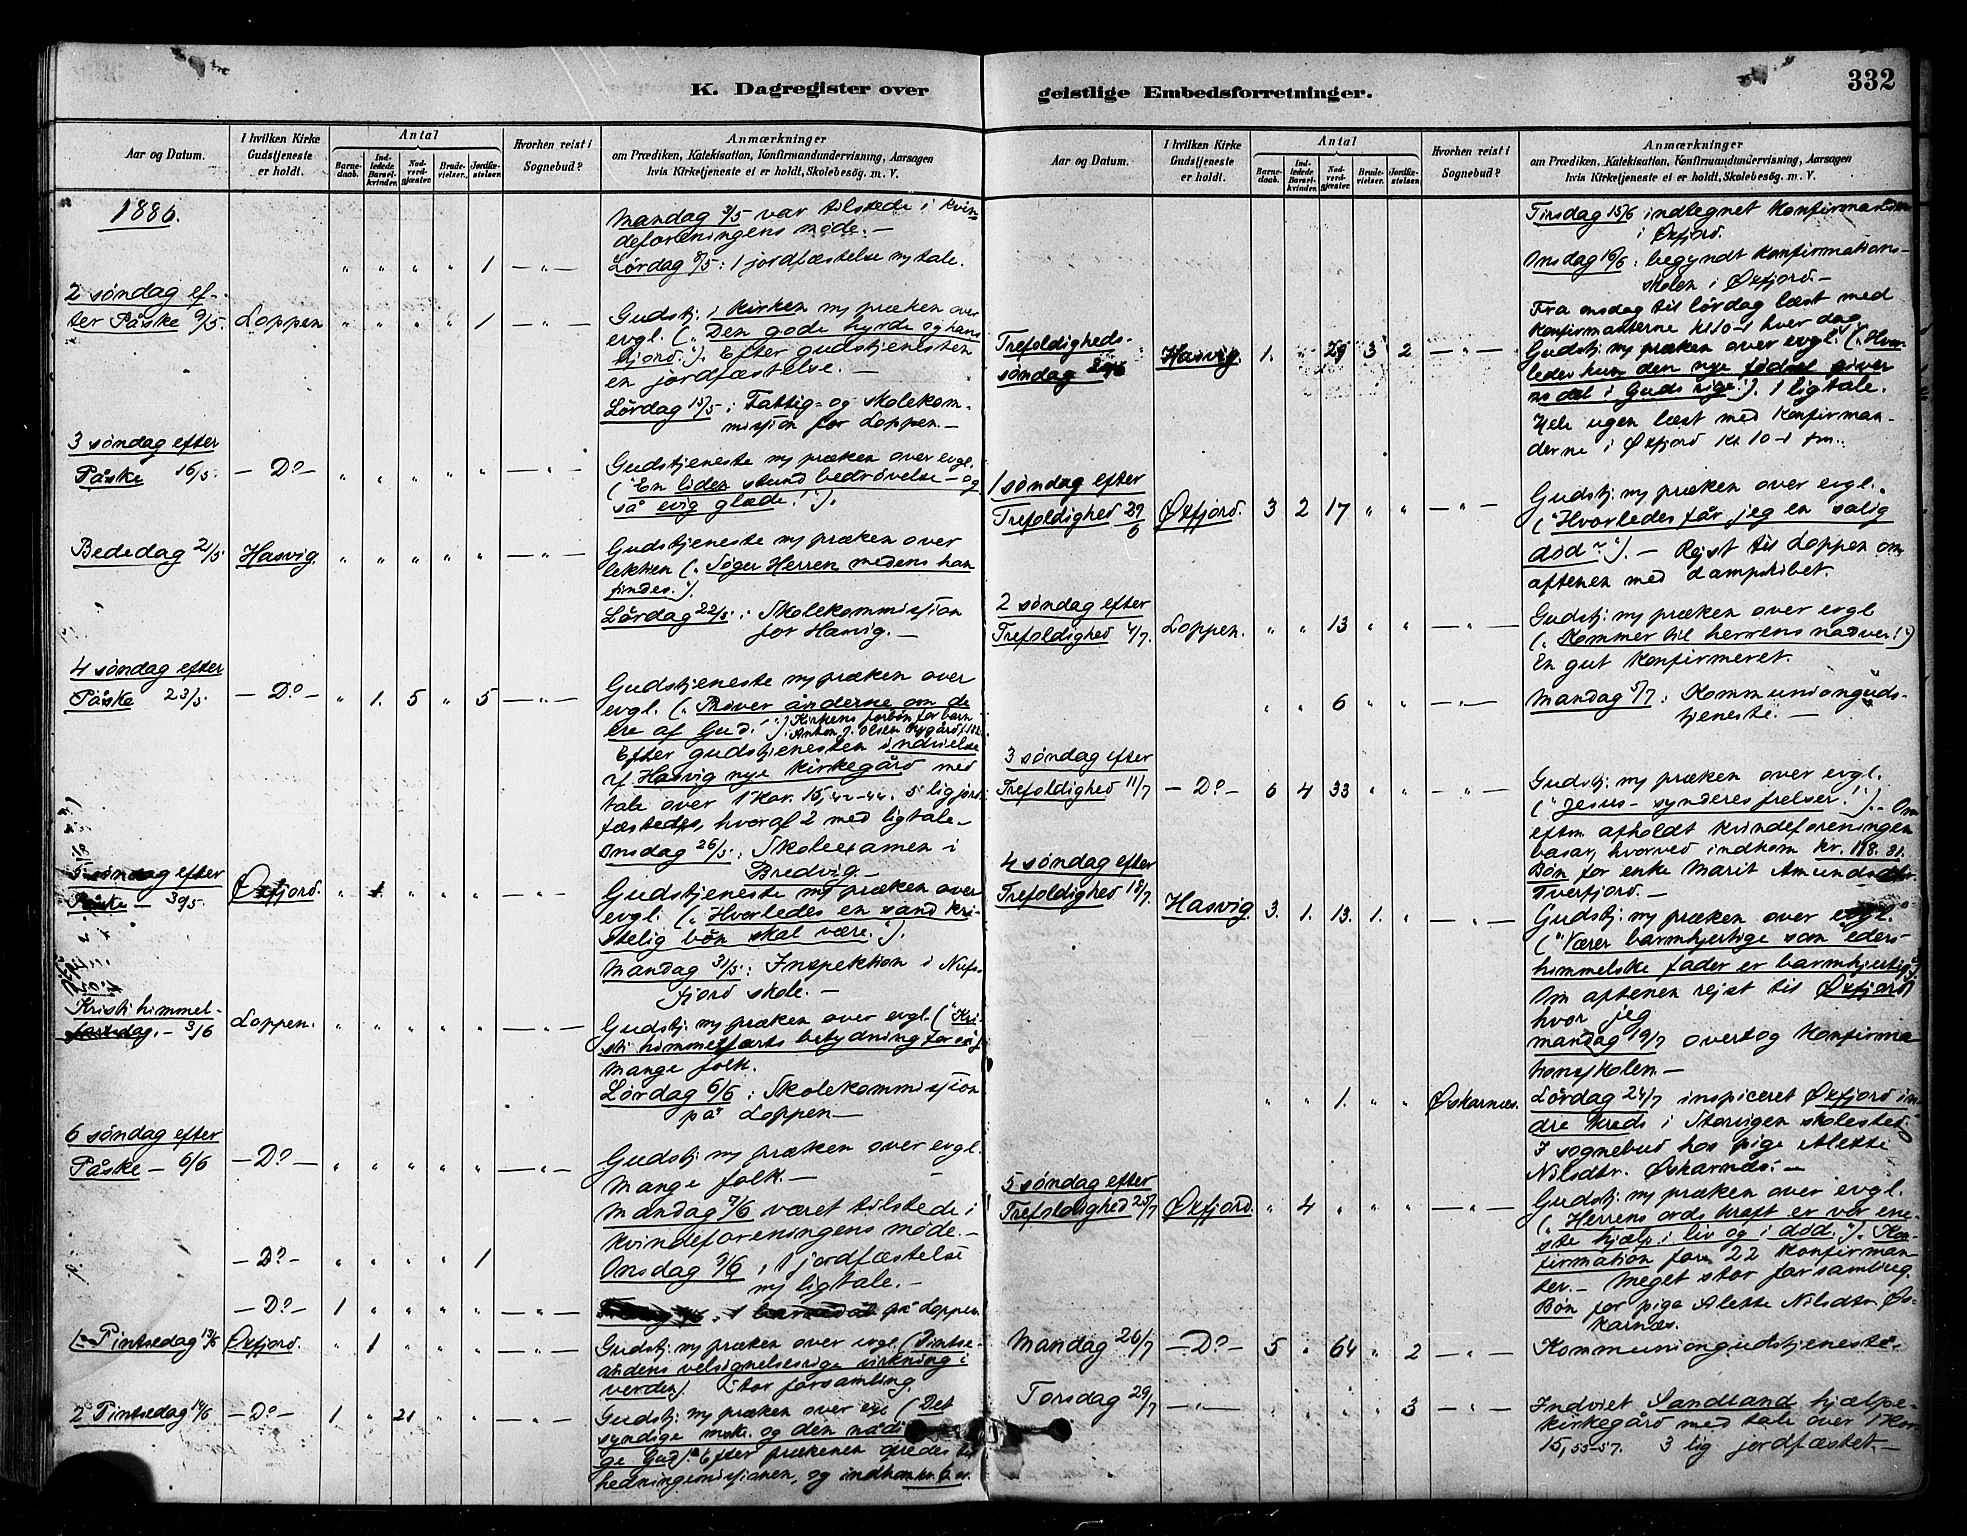 K. Dagregister over
Aar og Datum.
I hvilken Kirke
Gudstjeneste
er holdt.
Antal
Barne-
daab.
Ind-
ledede
Barsel-
kvinder.
Nad-
verd-
gjæster.
Brude-
vielser.
Jordfæ-
stelser.
Hvorhen reist i
Sognebud?
Anmærkninger
om Prædiken, Katekisation, Konfirmandundervisning, Aarsagen
hvis Kirketjeneste ei er holdt, Skolebesøg. m. V.
1886.
Mandag 3/5 var tilstede i kvin-
deforeningens møde. —
" " " " 1 — " — Lørdag 8/5: 1 jordfæstelse m/ tale.
2 søndag ef-
ter Påske 9/5 Loppen " " " " 1 — " — Gudstj. i kirken m/ præken over
evgl. ("Den gode hyrde og hans
hjord."). Efter gudstjenesten
en jordfæstelse. —
Lørdag 15/5: Fattig- og skolekom-
misjion for Loppen. —
3 søndag efter
Påske 16/5. — Do — " " " " " — " — Gudstjeneste m/ præken over evgl.
("En liden stund bedrøvelse — og
så evig glæde!").
Bededag 21/5 Hasvig. " " " " " — " — Gudstjeneste m/ præken over
lektien ("Søger Herren medens han
findes.").
Lørdag 22/5: Skolekommisjion
for Hasvig. —
4 søndag efter
Påske 23/5. — Do — " 1. 5 " 5 — " — Gudstjeneste m/ præken over
evgl. ("Prøver ånderne om de
ere af Gud!"). Kirkens forbøn for barn
Anton J. Olsen
Efter gudstjenesten indvielse
af Hasvig nye kirkegård med
tale over 1 Kor. 15, 42-44. 5 lig jord-
fæstedes, hvoraf 2 med ligtale. —
Onsdag 26/5: Skoleexamen i
Bredvig. —
5 søndag efter
Påske — 30/5. Øxfjord. " 1 " " " — " — Gudstjeneste m/ præken over
evgl. ("Hvorledes en sand kri-
stelig bøn skal være.").
Mandag 31/5: Inspektion i Nufs-
fjord skole. —
Kristi himmel-
fartsdag. — 3/6 Loppen. " " " " " — " — Gudstj. m/ præken over evgl. ("Kri-
sti himmelfarts betydning for os")
Mange folk.
Lørdag 5/6: Skolekommisjion
på Loppen —
6 søndag efter
Påske — 6/6 — Do — " " " " " — " — Gudstj. m/ præken over evgl.
Mange folk. —
Mandag 7/6 været tilstede i
kvindeforeningens møde. —
— Do — " " " " 1 Onsdag 9/6: 1 jordfæstelse
m/ ligtale. —
— Do — 1 " " " " — " — 1 barnedåb på Loppen.
1. Pintsedag 13/6 Øxfjord. " 1 Gudstj. m/ præken over evgl. (Pintse-
åndens velsignelsesrige virkning i
verden). Stor forsamling.
2 Pintsedag 14/6 — Do — 1 " 21 " " — " — Gudstj. m/ præken over evgl. (Det
syndige mske. og den nådi-
ge Gud). Efter prækenen
hedningemisjionen, og indkom kr.
geistlige Embedsforretninger.
332
Aar og Datum.
I hvilken Kirke
Gudstjeneste
er holdt.
Antal
Barne-
daab.
Ind-
ledede
Barsel-
kvinder.
Nad-
verd-
gjæster.
Brude-
vielser.
Jordfæ-
stelser.
Hvorhen reist i
Sognebud?
Anmærkninger
om Prædiken, Katekisation, Konfirmandundervisning, Aarsagen
hvis Kirketjeneste ei er holdt, Skolebesøg. m. V.
Tirsdag 15/6 indtegnet konfirmander
i Øxfjord.
Onsdag 16/6: begyndt konfirmations-
skolen i Øxfjord. —
Fra onsdag til lørdag læst med
konfirmanterne kl 10-1 hver dag.
Trefoldigheds-
søndag 20/6 Hasvig. 1. " 29 3 2 — " — Gudstj. m/ præken over evgl. ("Hvor-
ledes kun den nye fødsel giver
os del i Guds rige!"). 1 ligtale.
Hele ugen læst med konfirman-
derne i Øxfjord kl. 10-1 fm..
1 søndag efter
Trefoldighed 27/6 Øxfjord. 3 2 17 " " — " — Gudstj. m/ præken over evgl.
("Hvorledes får jeg en salig
død?"). — Rejst til Loppen om
aftenen med dampskibet.
2 søndag efter
Trefoldighed 4/7. Loppen. " " 13 " " — " — Gudstj. m/ præken over evgl
("Kommer til herrens nadver!")
En gut konfirmeret.
" " 6 " " — " — Mandag 5/7: Kommunionguds-
tjeneste. —
3 søndag efter
Trefoldighed 11/7 — Do — 6 4 33 " " — " — Gudstj. m/ præken over evgl.
("Jesus — synderes frelser!"). — Om
eftm. afholdt kvindeforeningen
basar, hvorved indkom kr. 118.31.
Bøn for enke Marit Amundsdtr
Tverfjord. —
4 søndag efter
Trefoldighed 18/7. Hasvig 3. 1. 13. 1. " — " — Gudstj. m/ præken over evgl.
("Værer barmhjertige som eders
himmelske fader er barmhjertig").
Om aftenen rejst til Øxfjord,
hvor jeg
mandag 19/7 overtog konfirma-
tionsskolen. —
" " 1. " " Øskarnæs. Lørdag 24/7 inspiceret Øxfjord in-
dre kreds i Storvigen skolested.
I sognebud hos pige Alette
Nilsdtr. Øskarnæs. —
5 søndag efter
Trefoldighed 25/7 Øxfjord. " 4 " " " — " — Gudstj. m/ præken over evgl.
("Herrens ords kraft er vor ene-
ste hjælp i liv og i død."). Kon-
firmation for 22 konfirman-
ter. — Meget stor forsamling.
Bøn for pige Alette Nilsdtr. Øs-
karnæs.
Mandag 26/7 — Do — 5 " 64 " 2 — " — Kommuniongudstjeneste.
Torsdag 29/7 — " — " " " " 3 — " — Indviet Sandland hjælpe-
kirkegård med tale over 1 Kor
15, 55-57. 3 lig jordfæstet. —